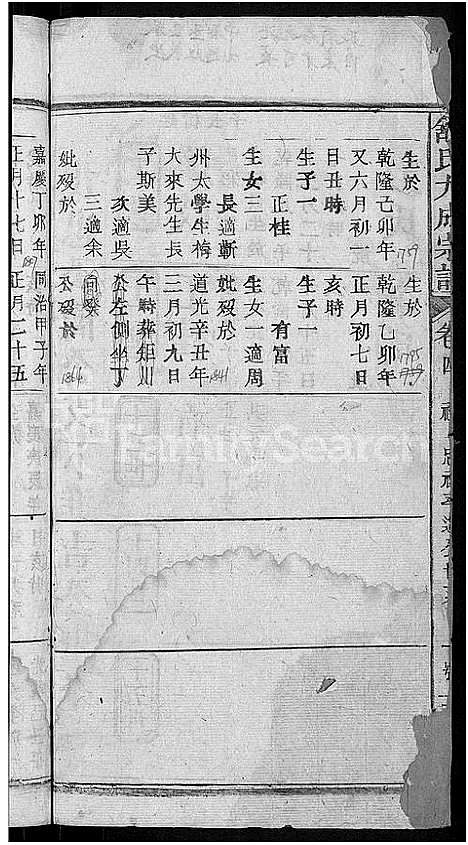 氏大成宗譜
卷四
生於
乾隆己卯年
又六月初一
日丑時
生子一
正桂
生女三
長適蘄
州太學生梅
大來先生長
子斯美
次適吳
三適余
妣歿於
嘉慶丁卯年
正月十七日
生於
乾隆乙卯年
正月初七日
亥時
生子一
有富
生女一適周
妣歿於
道光辛丑年
三月初九日
午時葬炬川
公左側坐丁
向癸
公歿於
同治甲子年
正月二十五
1795
1841
1864
1807
FamilySearch